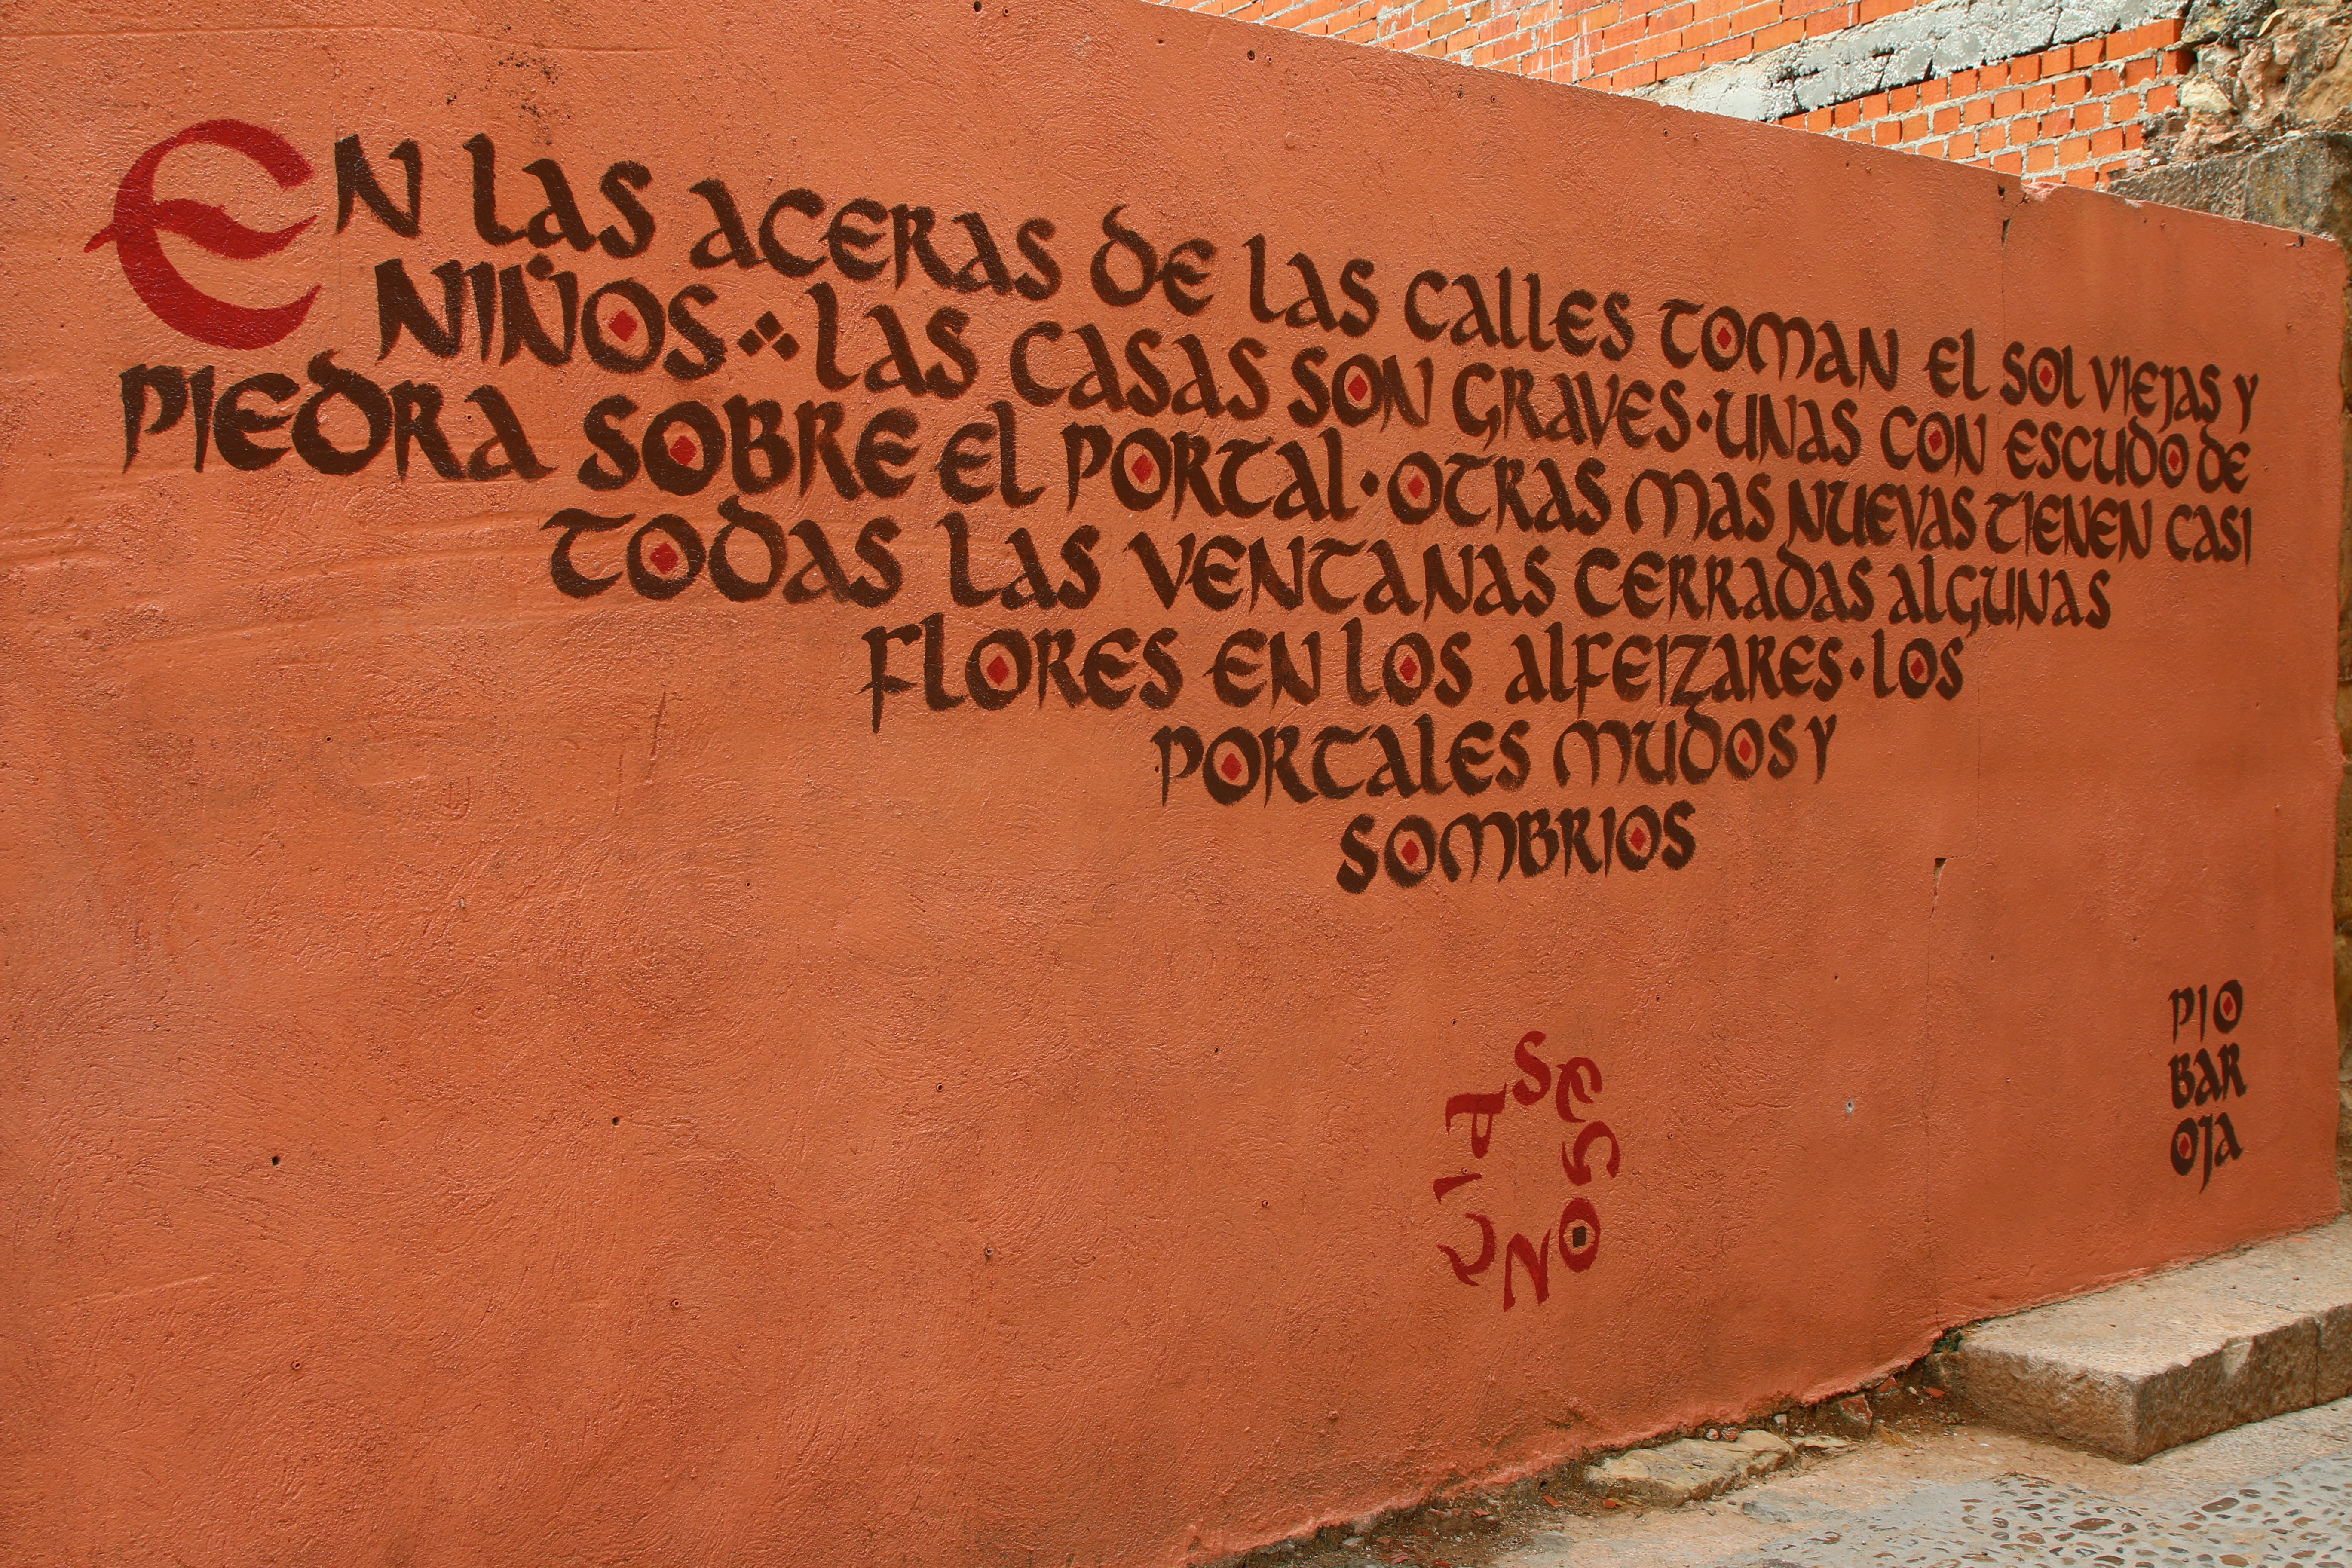 EN LAS ACERAS DE LAS CALLES TOMAN EL SOL VIEJAS Y
NIÑOS ❖ LAS CASAS SON GRAVES · UNAS CON ESCUDO DE
PIEDRA SOBRE EL PORTAL · OTRAS MAS NUEVAS TIENEN CASI
TODAS LAS VENTANAS CERRADAS ALGUNAS
FLORES EN LOS ALFEIZARES · LOS
PORTALES MUDOS Y
SOMBRIOS
SEGONTIA
PIO
BAR
OJA